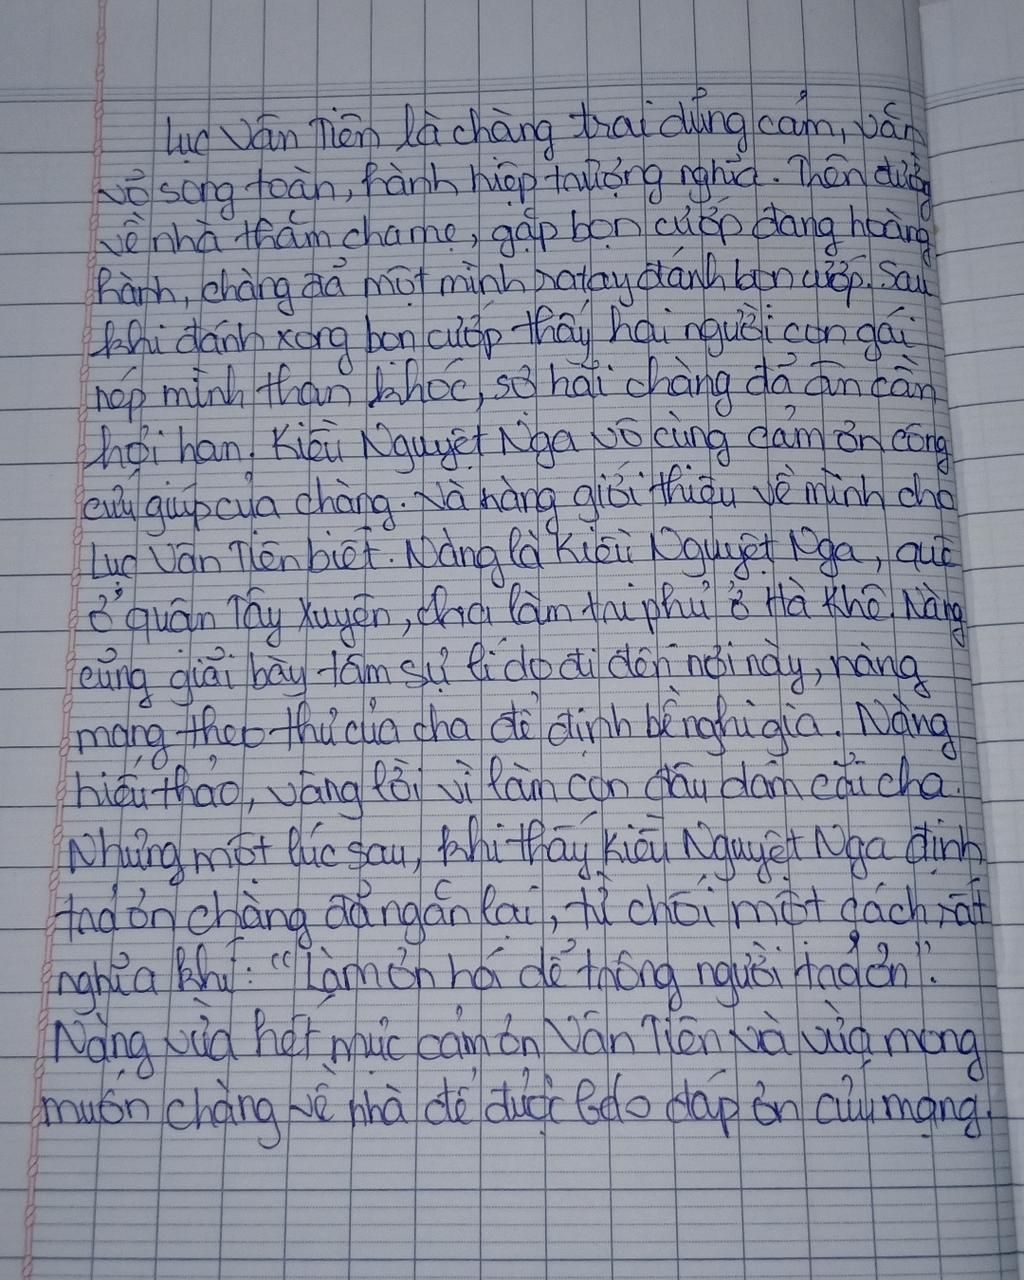 Lục Vân Tiên là chàng trai dũng cảm, văn
võ song toàn, hành hiệp trượng nghĩa. Trên đường
về nhà thăm cha mẹ, gặp bọn cướp đang hoàng
hành, chàng đã một mình ra tay đánh bọn cướp. Sau
khi đánh xong bọn cướp thấy hai người con gái
nép mình than khóc, sợ hãi chàng đã ân cần
hỏi han. Kiều Nguyệt Nga vô cùng cảm ơn công
cứu giúp của chàng. Và nàng giới thiệu về mình cho
Lục Vân Tiên biết. Nàng là Kiều Nguyệt Nga, quê
ở quận Tây Xuyên, cha làm tri phủ ở Hà Khê. Nàng
cũng giải bày tâm sự lí do đi đến nơi này, nàng
mang theo thư của cha để định bề nghi gia. Nàng
hiếu thảo, vâng lời vì làm con đâu dám cãi cha.
Nhưng một lúc sau, khi thấy Kiều Nguyệt Nga định
trả ơn chàng đã ngăn lại, từ chối một cách rất
nghĩa khí: "Làm ơn há dễ trông người trả ơn".
Nàng vừa hết mực cảm ơn Vân Tiên và vừa mong
muốn chàng về nhà để được báo đáp ơn cứu mạng.